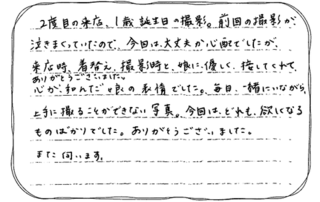 2度目の来店、1歳誕生日の撮影。前回の撮影が、
泣きまくっていたので、今回は大丈夫か心配でしたが、
来店時、着替え、撮影時と、娘に、優しく、接してくれて、
ありがとうございました。
心が、和んだ良の表情でした。毎日、一緒にいながら、
上手に撮ることができない写真。今回は、どれも、欲しくなる
ものばかりでした。ありがとうございました。
また伺います。